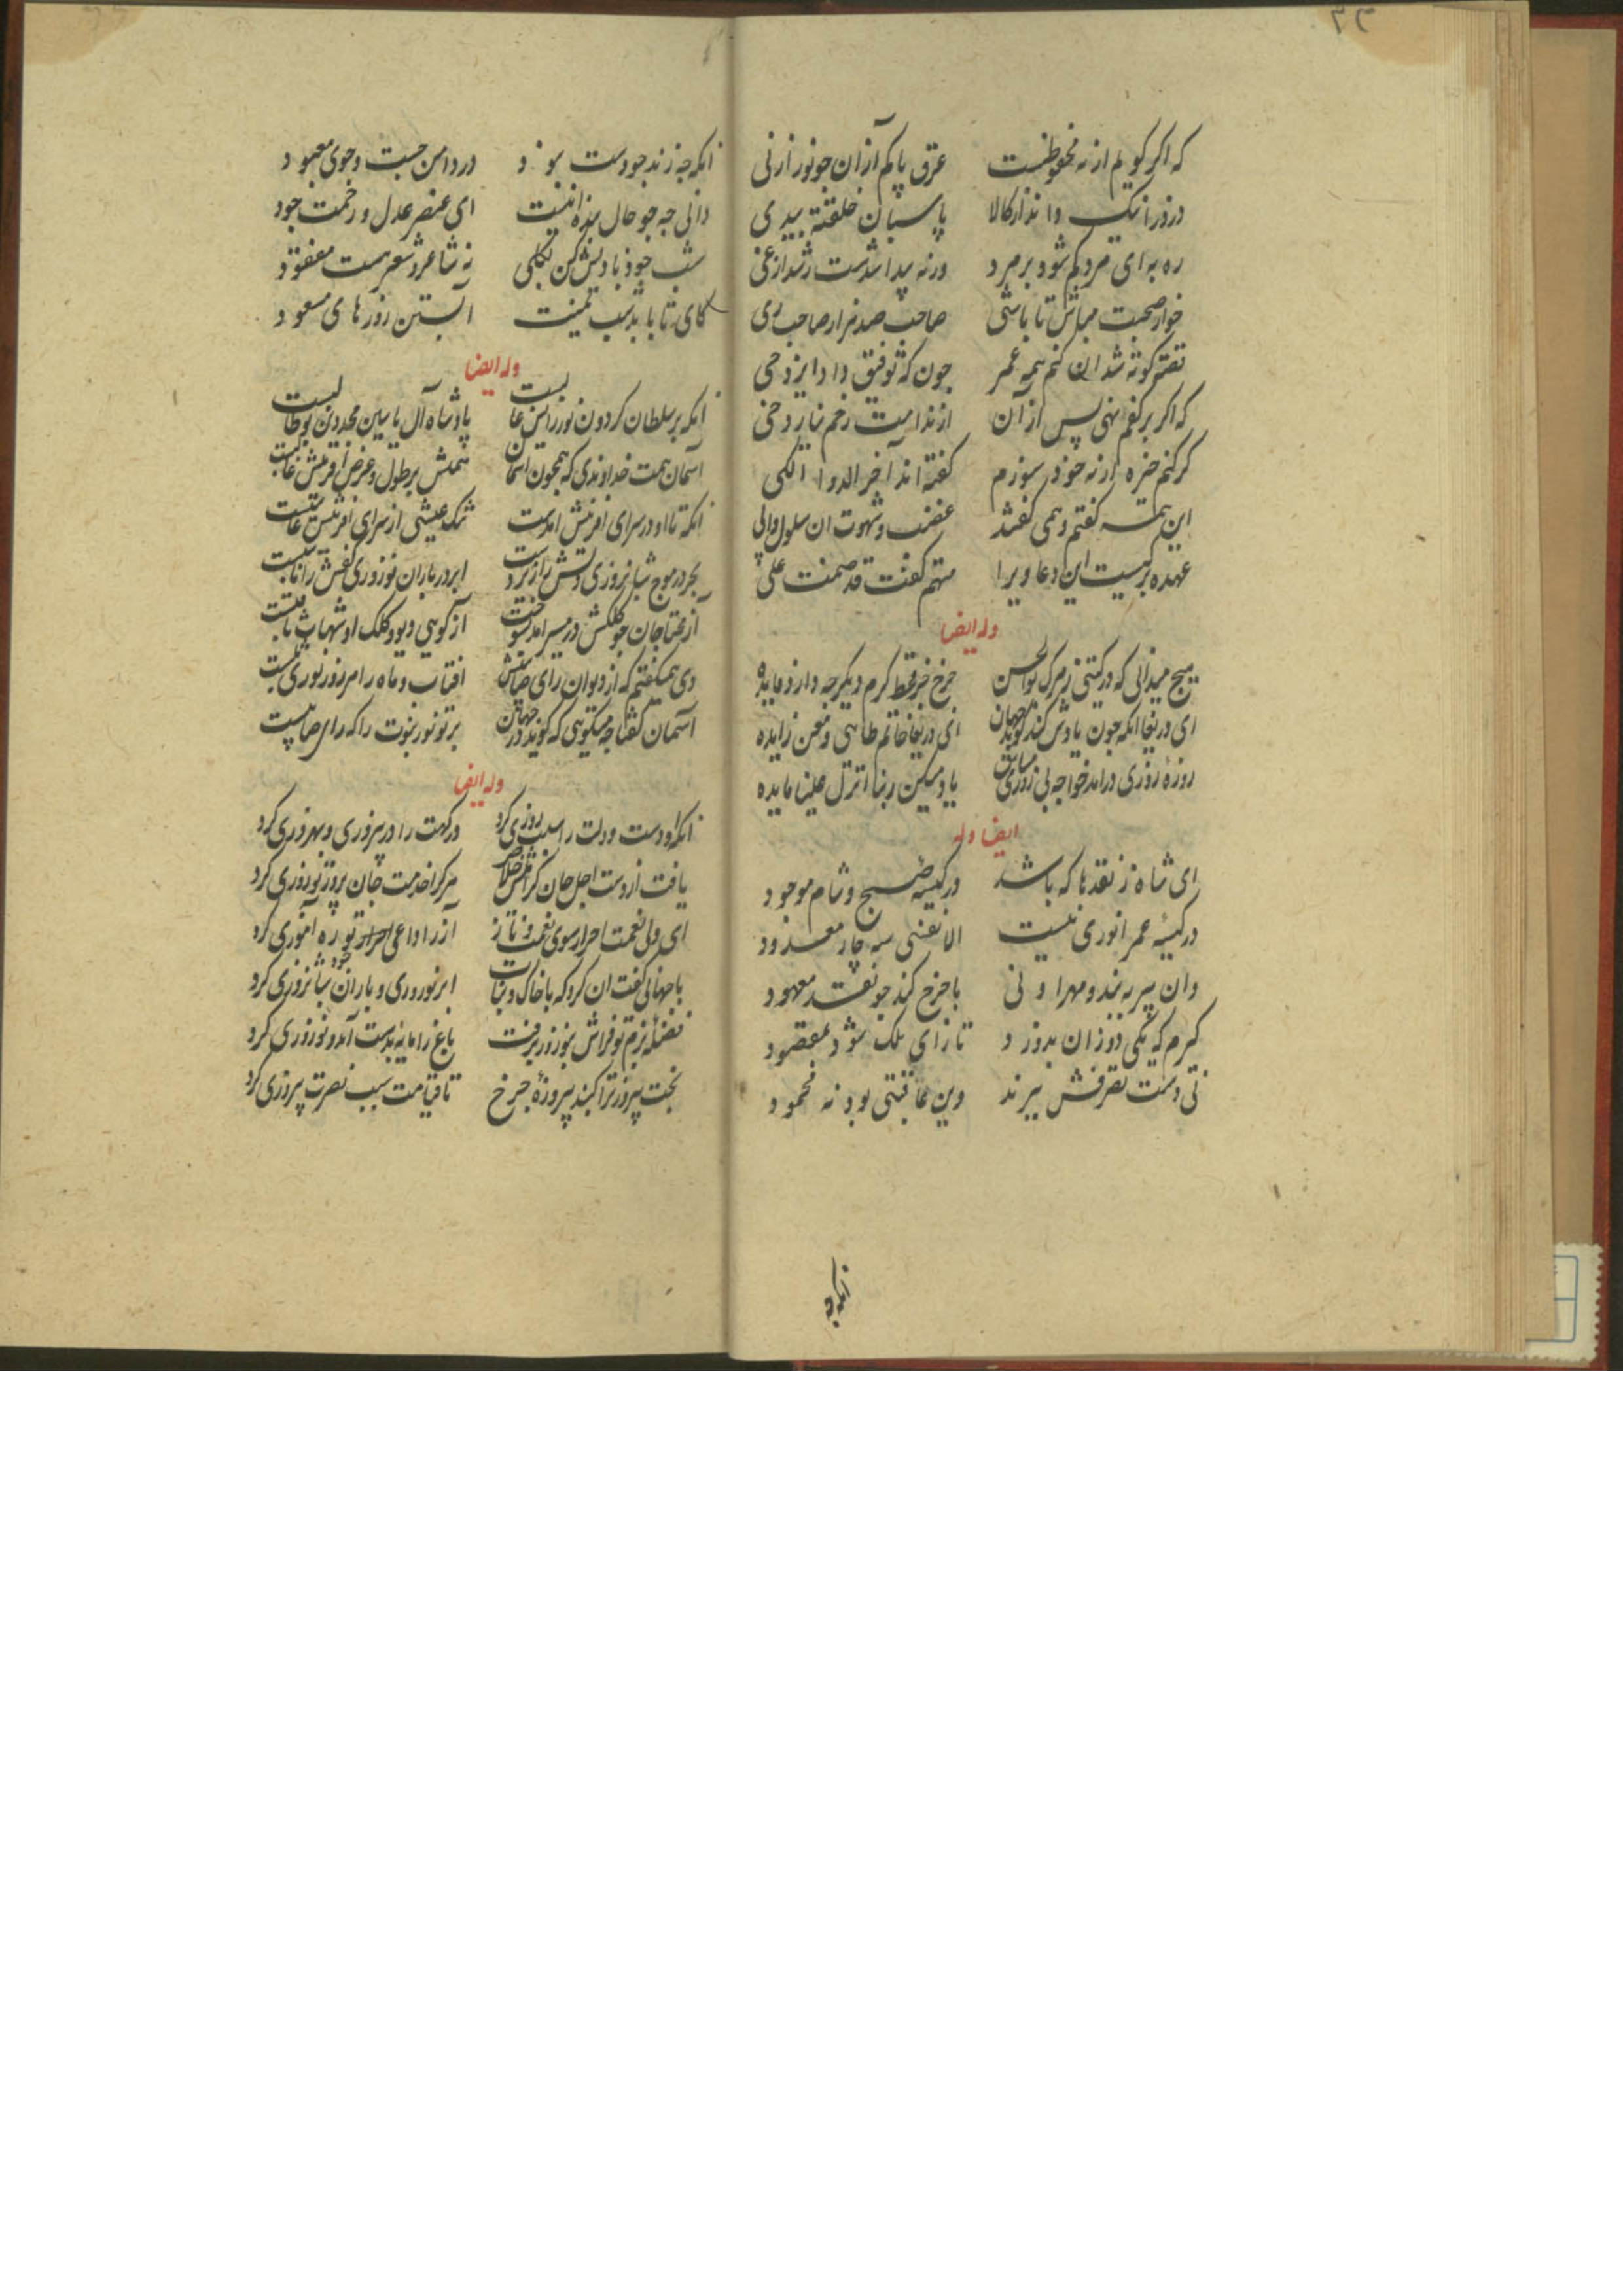 که اگر کویم از نه محفوظست عرق پاکم از آن جو نور از نی
درد را نیک داند از کالا پاسبان خفته بیدی
ره برای مردکم شود بر مرد ورنه پیدا شدست رشد از غی
خوار صحبت مباش تا باشی صاحب صد هزار صاحب ری
کوته شد ان کنم همه عمر جون که توفیق داد ایزد حی
که اگر برکفم نهی پس از آن از ندامت زخم نیارد خی
کرکنم خیره از نه خود سوزم کفته اند آخر الدوا الکی
این همه کفتم و همی کفتند غضب و شهوت ان سلول والی
عهده برکیست این دعاوی را متهم کفت قد ضمنت علی
وله ایضا
هیج میدانی که در کیتی ز مرک بوالحسن جرخ جز قحط کرم دیکر جه دارد فایده
ای دریغا انکه جون یادش کند کوید جهان ای دریغا حاتم طائی و معن زایده
روزهٔ روزی درامد خواجه بی روزی یا ومسکین ربنا انزل علینا مایده
ایضا وله
ای شاه ز نقدها که باشد در کیسهٔ صبح و شام موجود
در کیسهٔ عمر انوری نیست الا نفسی سه چار معدود
وان نیز به بند و مهر او نی با جرخ کند جو نقد معهود
کیرم که یکی دو زان بدوزد تا زای ملک شود مقصود
نی دست تصرفش ببرند وین عاقبتی بود نه محمود
زانکه جه
زانکه جه زند جو دست بود در دامن جست و جوی معبود
دانی جه جو حال بنده اینست ای عنصر عدل و رحمت جود
شب خود با دلش کن یکی نه شاعر و شعر هست مفقود
کای تا بابد شب تمنیت آبستن روزهای مسعود
وله ایضا
انکه بر سلطان کردون نور رایش غالبست پادشاه آل یاسین مجددین بوطالبست
آسمان همت خداوندی که همجون اسمان همتش بر طول و عرض آفرینش غالبست
انکه تا او در سرای افرینش امدست تنک عیشی از سرای افرینش غایبست
بحر در موج شبانروزی دستش را ابر در باران نوروزی کفش را نایبست
از محتاجان جو کلکش در مسیر امد آز کویی دیو و کلک او شهاب ثاقبست
دی همی کفتم که از دیوان رای صایبش افتاب و ماه را امروز نوری راتبست
آسمان کفتا جه میکویی که کوید در جهان پرتو نور نبوت را که رای صایبست
وله ایضا
انکه او دست و دلت را سبب روزی کرد درکهت را در پیروزی و بهروزی کرد
یافت از دست اجل جان کرانش خلاص هرکرا خدمت جان پرور تو روزی کرد
ای ولی نعمت احرار سوی نعمت و ناز آز را داعی احرار تو ره آموزی کرد
با جهانی کفت ان کرد که با خاک و نبات ابر نوروزی و باران شبانروزی کرد
فضلهٔ بزم تو فراش بنوروز برفت باغ را مایه بدست آمد و نوروزی کرد
بخت پیروز ترا کنبد پیروزهٔ جرخ تا قیامت سبب نصرت پیروزی کرد